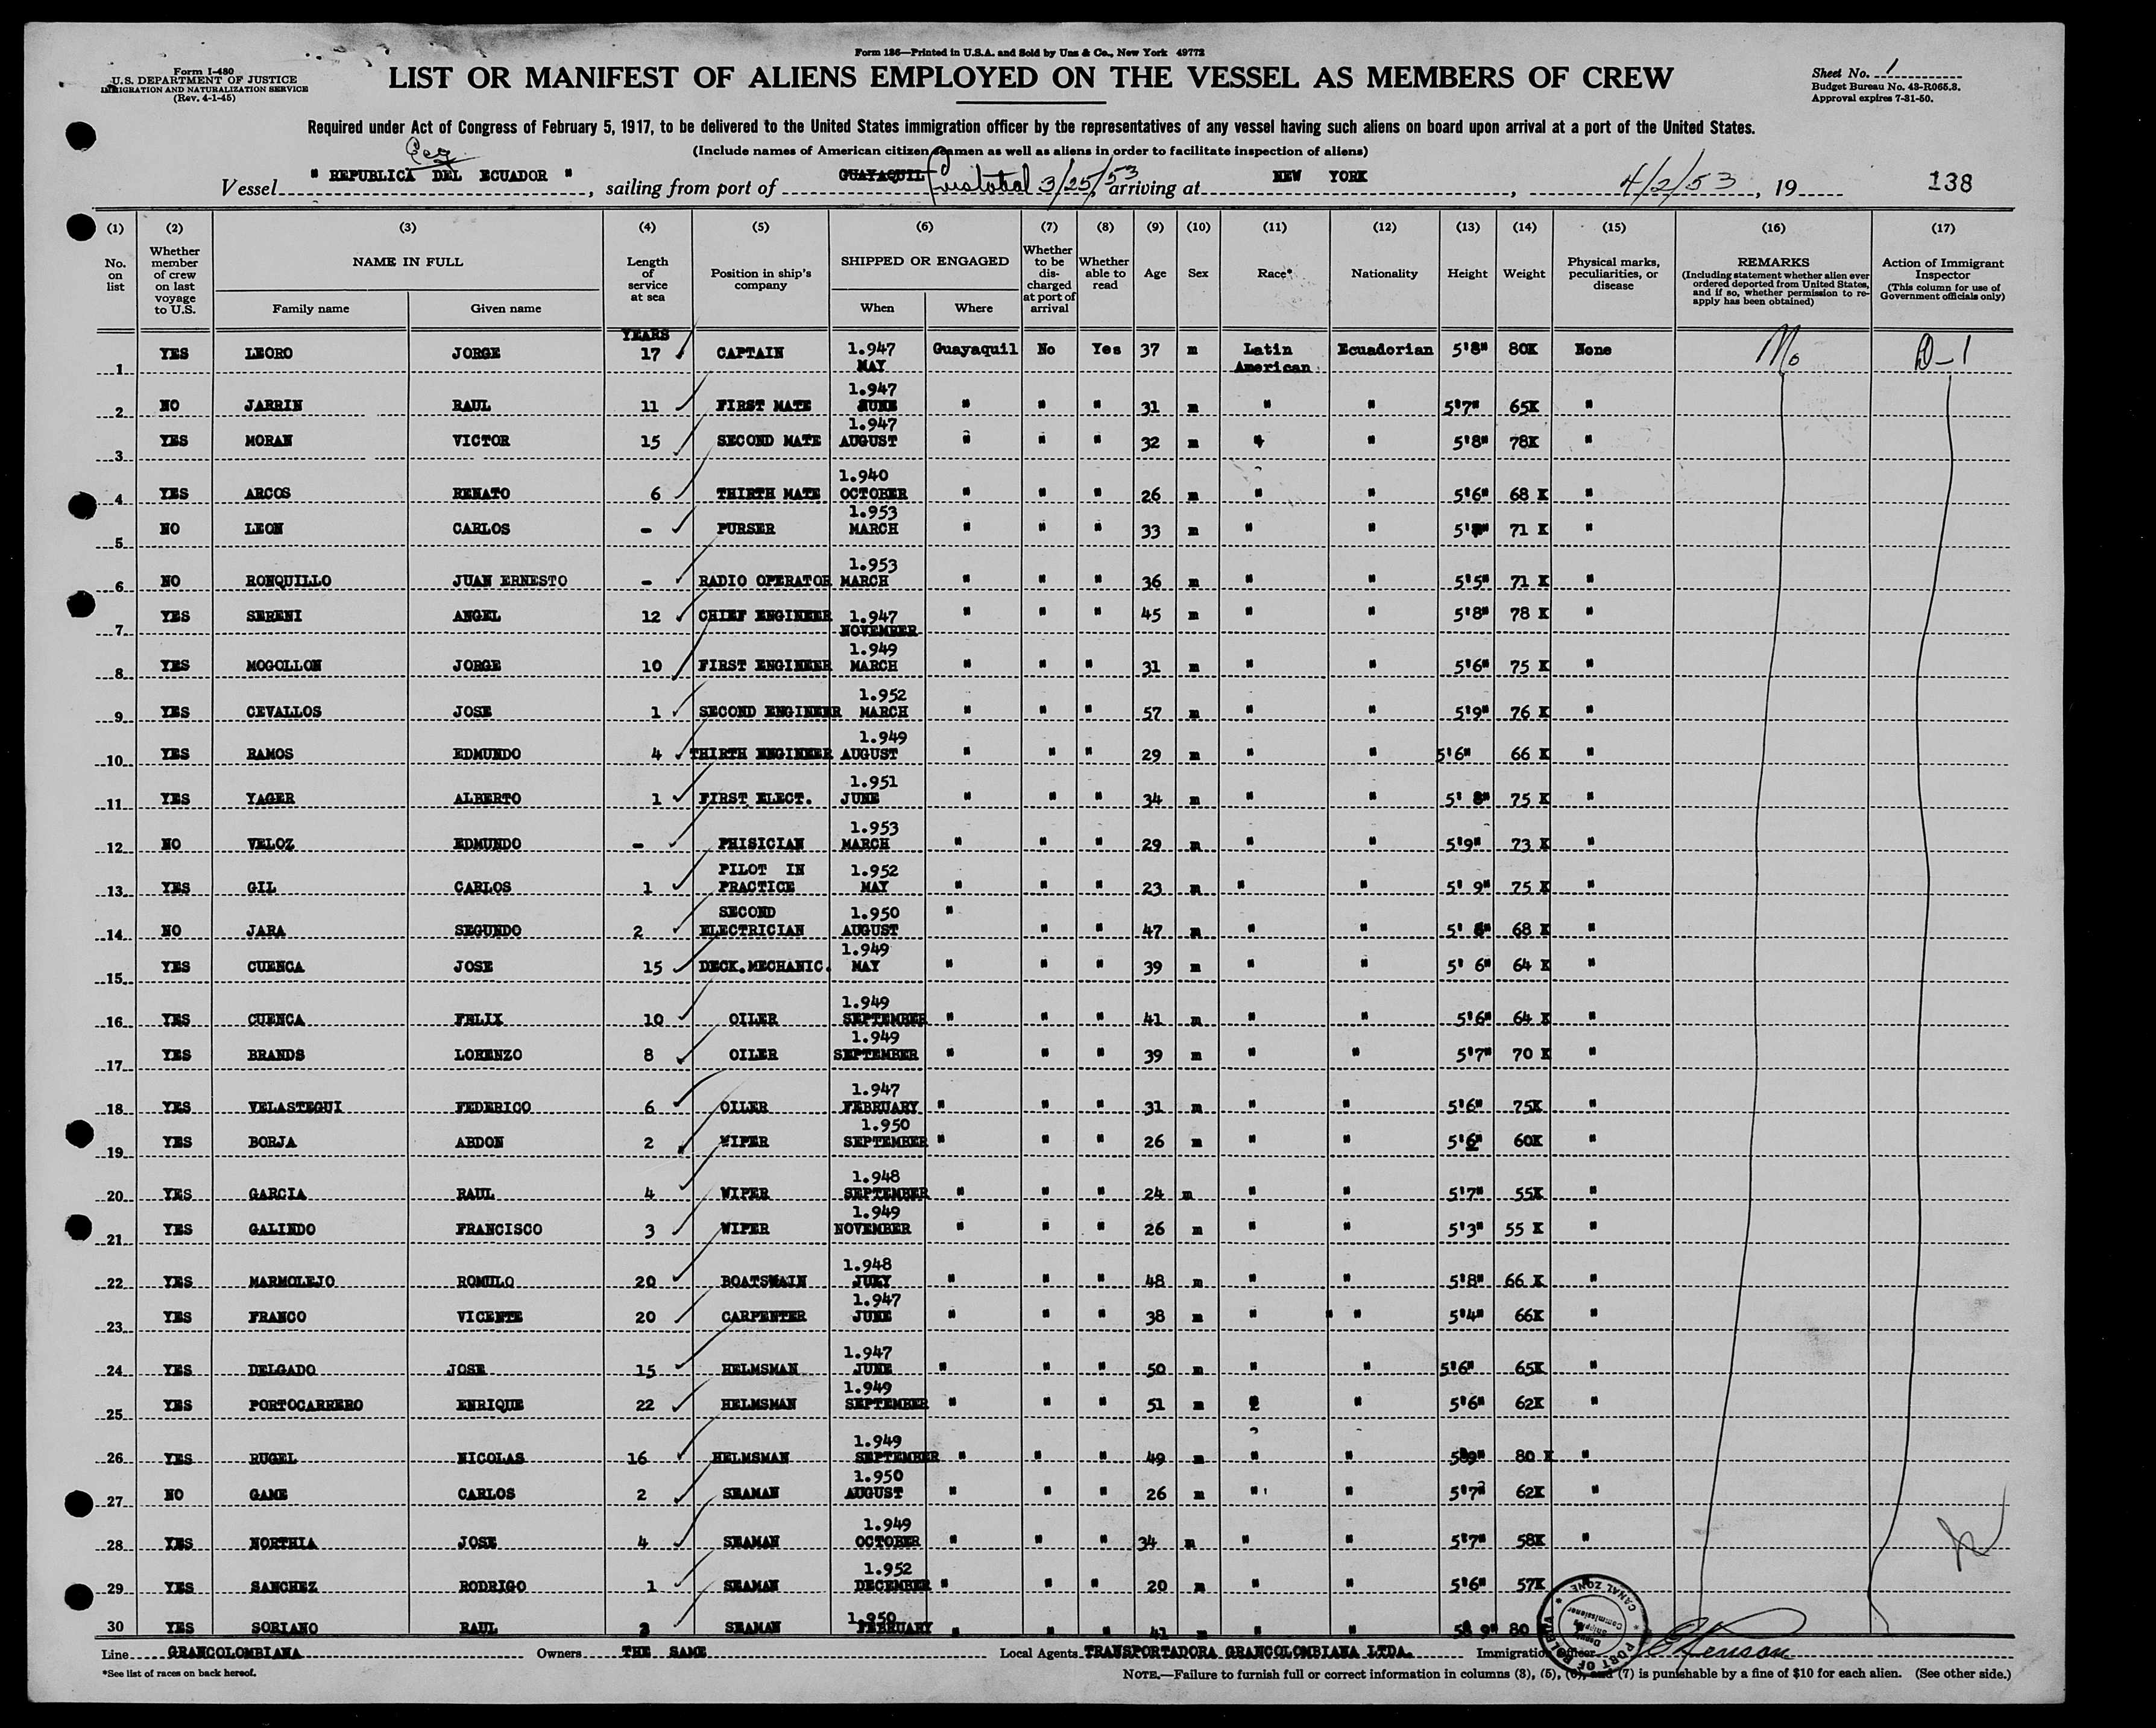 Form 126—Printed in U.S.A. and Sold by Unz & Co., New York 49772
Form I-480
U.S. DEPARTMENT OF JUSTICE
IMMIGRATION AND NATURALIZATION SERVICE
(Rev. 4-1-45)
LIST OR MANIFEST OF ALIENS EMPLOYED ON THE VESSEL AS MEMBERS OF CREW
Sheet No. 1
Budget Bureau No. 43-R065.3.
Approval expires 7-31-50.
Required under Act of Congress of February 5, 1917, to be delivered to the United States immigration officer by the representatives of any vessel having such aliens on board upon arrival at a port of the United States.
(Include names of American citizen seamen as well as aliens in order to facilitate inspection of aliens)
Vessel " REPUBLICA DEL ECUADOR ", sailing from port of GUAYAQUIL Cristobal 3/25/53, arriving at NEW YORK, 4/2/53, 19 138
(1) (2) (3) (4) (5) (6) (7) (8) (9) (10) (11) (12) (13) (14) (15) (16) (17)
No. on list
Whether member of crew on last voyage to U.S.
NAME IN FULL
Family name Given name
Length of service at sea
Position in ship's company
SHIPPED OR ENGAGED
When Where
Whether to be discharged at port of arrival
Whether able to read
Age Sex Race* Nationality Height Weight
Physical marks, peculiarities, or disease
REMARKS
(Including statement whether alien ever ordered deported from United States, and if so, whether permission to reapply has been obtained)
Action of Immigrant Inspector
(This column for use of Government officials only)
YEARS
1 YES LEORO JORGE 17 CAPTAIN 1.947 MAY Guayaquil No Yes 37 m Latin American Ecuadorian 5'8" 80K None No D-1
2 NO JARRIN RAUL 11 FIRST MATE 1.947 JUNE " " " 31 m " " 5'7" 65K "
3 YES MORAN VICTOR 15 SECOND MATE 1.947 AUGUST " " " 32 m " " 5'8" 78K "
4 YES ARCOS RENATO 6 THIRTH MATE 1.940 OCTOBER " " " 26 m " " 5'6" 68 K "
5 NO LEON CARLOS - PURSER 1.953 MARCH " " " 33 m " " 71 K "
6 NO RONQUILLO JUAN ERNESTO - RADIO OPERATOR 1.953 MARCH " " " 36 m " " 5'5" 71 K "
7 YES SERENI ANGEL 12 CHIEF ENGINEER 1.947 NOVEMBER " " " 45 m " " 5'8" 78 K "
8 YES MOGOLLON JORGE 10 FIRST ENGINEER 1.949 MARCH " " " 31 m " " 5'6" 75 K "
9 YES CEVALLOS JOSE 1 SECOND ENGINEER 1.952 MARCH " " " 57 m " " 5'9" 76 K "
10 YES RAMOS EDMUNDO 4 THIRTH ENGINEER 1.949 AUGUST " " " 29 m " " 5'6" 66 K "
11 YES YAGER ALBERTO 1 FIRST ELECT. 1.951 JUNE " " " 34 m " " 5' 8" 75 K "
12 NO VELOZ EDMUNDO - PHISICIAN 1.953 MARCH " " " 29 m " " 5'9" 73 K "
13 YES GIL CARLOS 1 PILOT IN PRACTICE 1.952 MAY " " " 23 m " " 5' 9" 75 K "
14 NO JARA SEGUNDO 2 SECOND ELECTRICIAN 1.950 AUGUST " " " 47 m " " 68 K "
15 YES CUENCA JOSE 15 DECK.MECHANIC. 1.949 MAY " " " 39 m " " 5' 6" 64 K "
16 YES CUENCA FELIX 10 OILER 1.949 SEPTEMBER " " " 41 m " " 5'6" 64 K "
17 YES BRANDS LORENZO 8 OILER 1.949 SEPTEMBER " " " 39 m " " 5'7" 70 K "
18 YES VELASTEGUI FEDERICO 6 OILER 1.947 FEBRUARY " " " 31 m " " 5'6" 75K "
19 YES BORJA ABDON 2 WIPER 1.950 SEPTEMBER " " " 26 m " " 5'6" 60K "
20 YES GARCIA RAUL 4 WIPER 1.948 SEPTEMBER " " " 24 m " " 5'7" 55K "
21 YES GALINDO FRANCISCO 3 WIPER 1.949 NOVEMBER " " " 26 m " " 5'3" 55 K "
22 YES MARMOLEJO ROMULO 20 BOATSWAIN 1.948 JULY " " " 48 m " " 5'8" 66 K "
23 YES FRANCO VICENTE 20 CARPENTER 1.947 JUNE " " " 38 m " " " 5'4" 66K "
24 YES DELGADO JOSE 15 HELMSMAN 1.947 JUNE " " " 50 m " " 5'6" 65K "
25 YES PORTOCARRERO ENRIQUE 22 HELMSMAN 1.949 SEPTEMBER " " " 51 m " 5'6" 62K "
26 YES RUGEL NICOLAS 16 HELMSMAN 1.949 SEPTEMBER " " " 49 m " " 5'9" 80 K "
27 NO GAME CARLOS 2 SEAMAN 1.950 AUGUST " " " 26 m " " 5'7" 62K "
28 YES NORTHIA JOSE 4 SEAMAN 1.949 OCTOBER " " " 34 m " " 5'7" 58K "
29 YES SANCHEZ RODRIGO 1 SEAMAN 1.952 DECEMBER " " " 20 m " " 5'6" 57K
30 YES SORIANO RAUL SEAMAN 1.950 FEBRUARY " " " 41 m " " 5' 9" 80
Line GRANCOLOMBIANA Owners THE SAME Local Agents TRANSPORTADORA GRANCOLOMBIANA LTDA. Immigration Officer
PORT OF BALBOA * CANAL ZONE * Deputy Shipping Commissioner
*See list of races on back hereof.
NOTE.—Failure to furnish full or correct information in columns (3), (5), (6), and (7) is punishable by a fine of $10 for each alien. (See other side.)